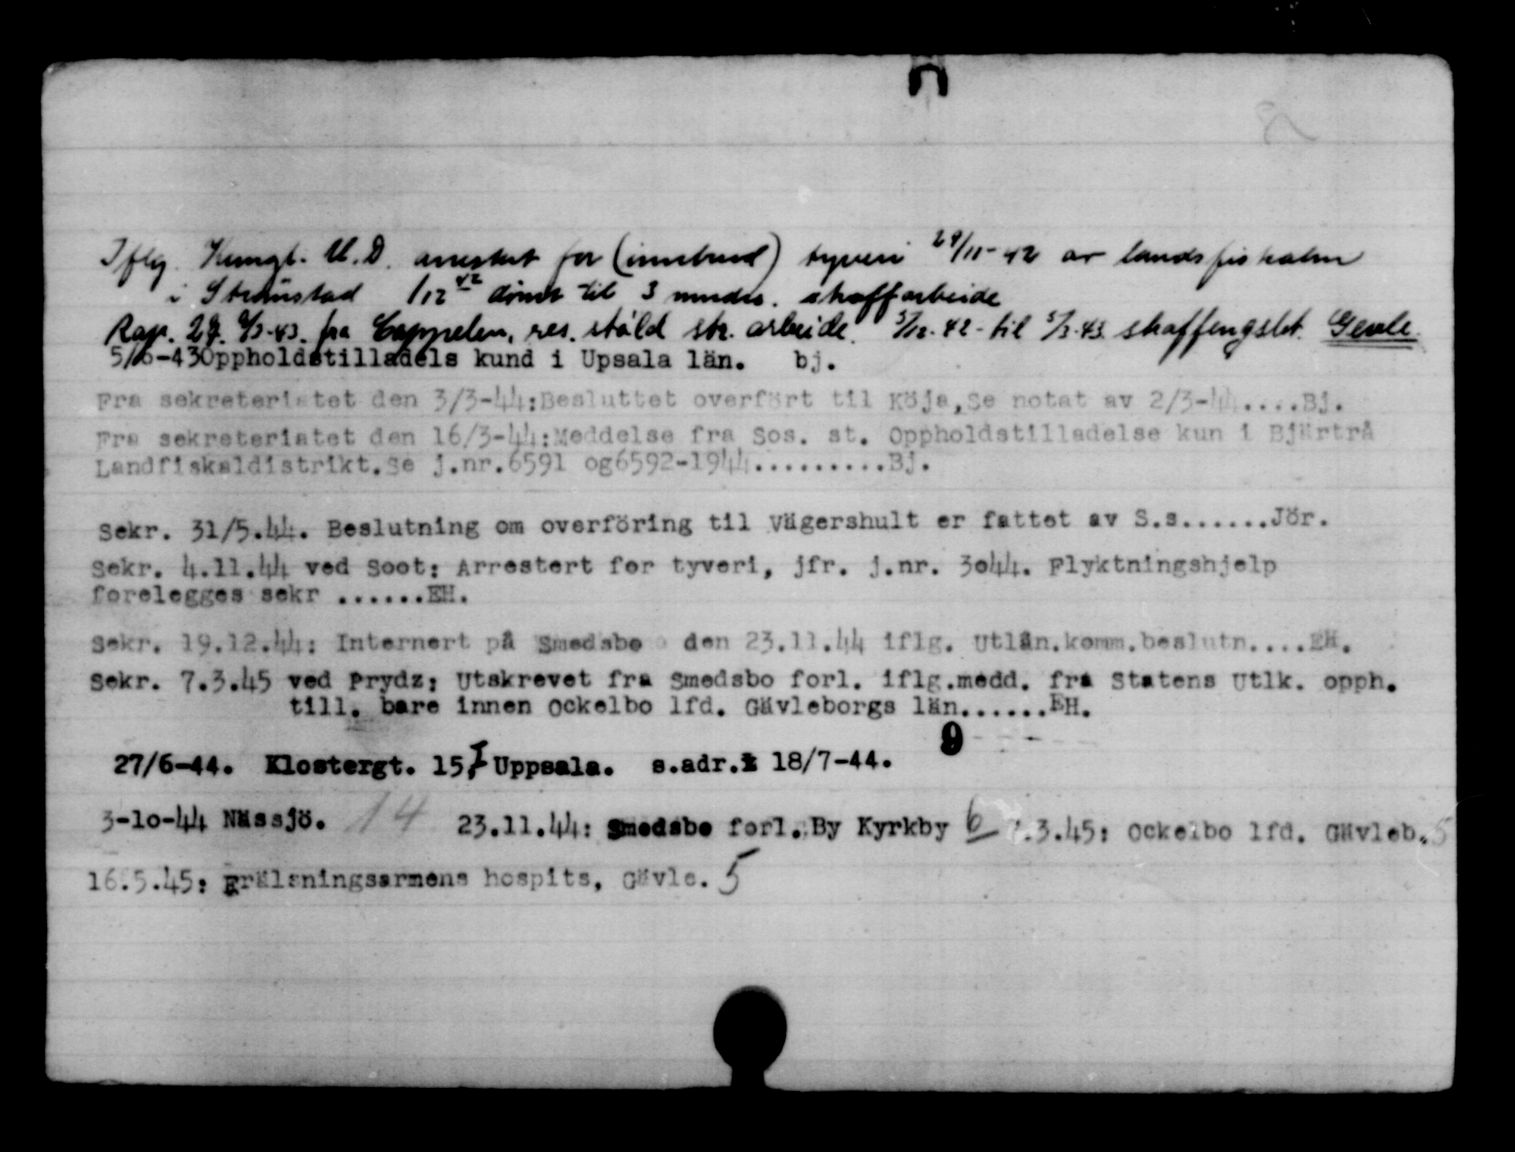 Iflg. Kungl. U.D. arrestert for (innbrud) tyveri 28/11-42 av landsfiskalen
i Strömstad 1/12 42 dömt til 3 mndrs. straffarbeide
Rap. 27. 9/3-43. fra Cappelen, res. ståld str. arbeide. 5/12-42 - til 5/3-43. straffengslet. Gevle
5/6-43Oppholdstilladels kund i Upsala län. bj.
Fra sekreteriatet den 3/3-44:Besluttet overfört til Köja,Se notat av 2/3-44....Bj.
Fra sekreteriatet den 16/3-44:Meddelse fra Sos. st. Oppholdstilladelse kun i Bjärtrå
Landfiskaldistrikt.Se j.nr.6591 og6592-1944.........Bj.
Sekr. 31/5.44. Beslutning om overföring til Vägershult er fattet av S.s......Jör.
Sekr. 4.11.44 ved Soot: Arrestert for tyveri, jfr. j.nr. 3o44. Flyktningshjelp
forelegges sekr ......EH.
Sekr. 19.12.44: Internert på Smedsbo den 23.11.44 iflg. Utlän.komm.beslutn....EH.
Sekr. 7.3.45 ved Prydz: Utskrevet fra Smedsbo forl. iflg.medd. fra Statens Utlk. opph.
till. bare innen Ockelbo lfd. Gävleborgs län......EH.
9
27/6-44. Klostergt. 15,I Uppsala. s.adr. 18/7-44.
3-10-44 Nässjö. 14 23.11.44: Smedsbo forl. By Kyrkby 6 7.3.45: Ockelbo lfd. Gävleb. 5
16.5.45: Frälsningsarmens hospits, Gävle. 5